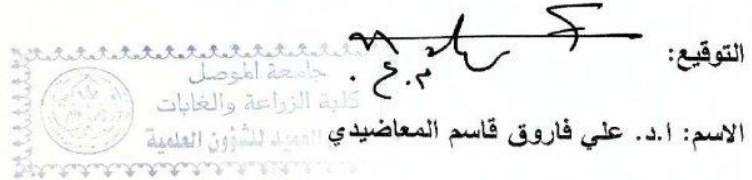 التوقيع:
جامعة الموصل
كلية الزراعة والغابات
العميد للشؤون العلمية
م.ع.
الاسم: ا.د. علي فاروق قاسم المعاضيدي